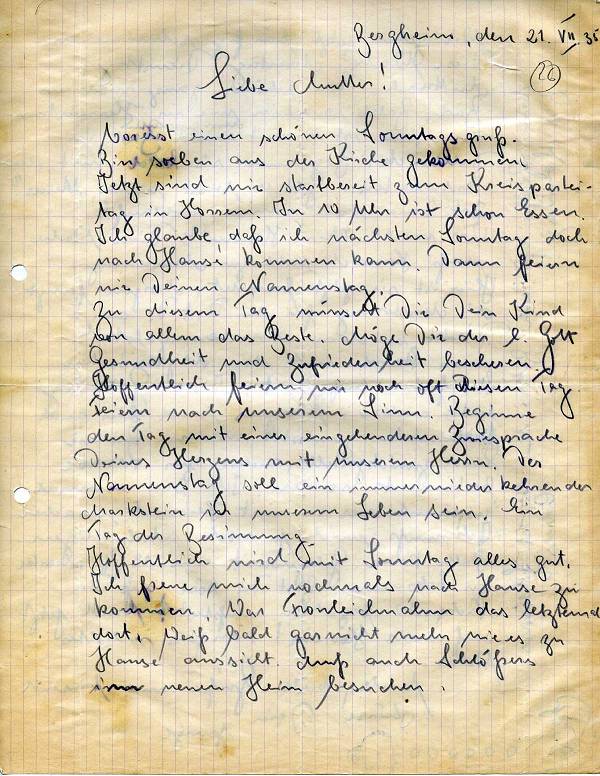 Bergheim, den 21. VII. 35
26
Liebe Mutter!
Vorerst einen schönen Sonntagsgruß.
Bin soeben aus der Kirche gekommen.
Jetzt sind wir startbereit zum Kreispartei-
tag in Horrem. Um 10 Uhr ist schon Essen.
Ich glaube, daß ich nächsten Sonntag doch
nach Hause kommen kann. Dann feiern
wir Deinen Namenstag.
Zu diesem Tag wünscht Dir Dein Kind
von allem das Beste. Möge Dir der l. Gott
Gesundheit und Zufriedenheit bescheren.
Hoffentlich feiern wir noch oft diesen Tag
feiern nach unserem Sinn. Beginne
den Tag mit einer eingehenderen Zwiesprache
Deines Herzens mit unserem Herrn. Der
Namenstag soll ein immerwiederkehrender
Markstein in unserem Leben sein. Ein
Tag der Besinnung.
Hoffentlich wird mit Sonntag alles gut.
Ich freue mich nochmals nach Hause zu
kommen. War Fronleichnahm das letztemal
dort. Weiß bald garnicht mehr wie es zu
Hause aussieht. Muß auch Schlößers
im neuen Heim besuchen.